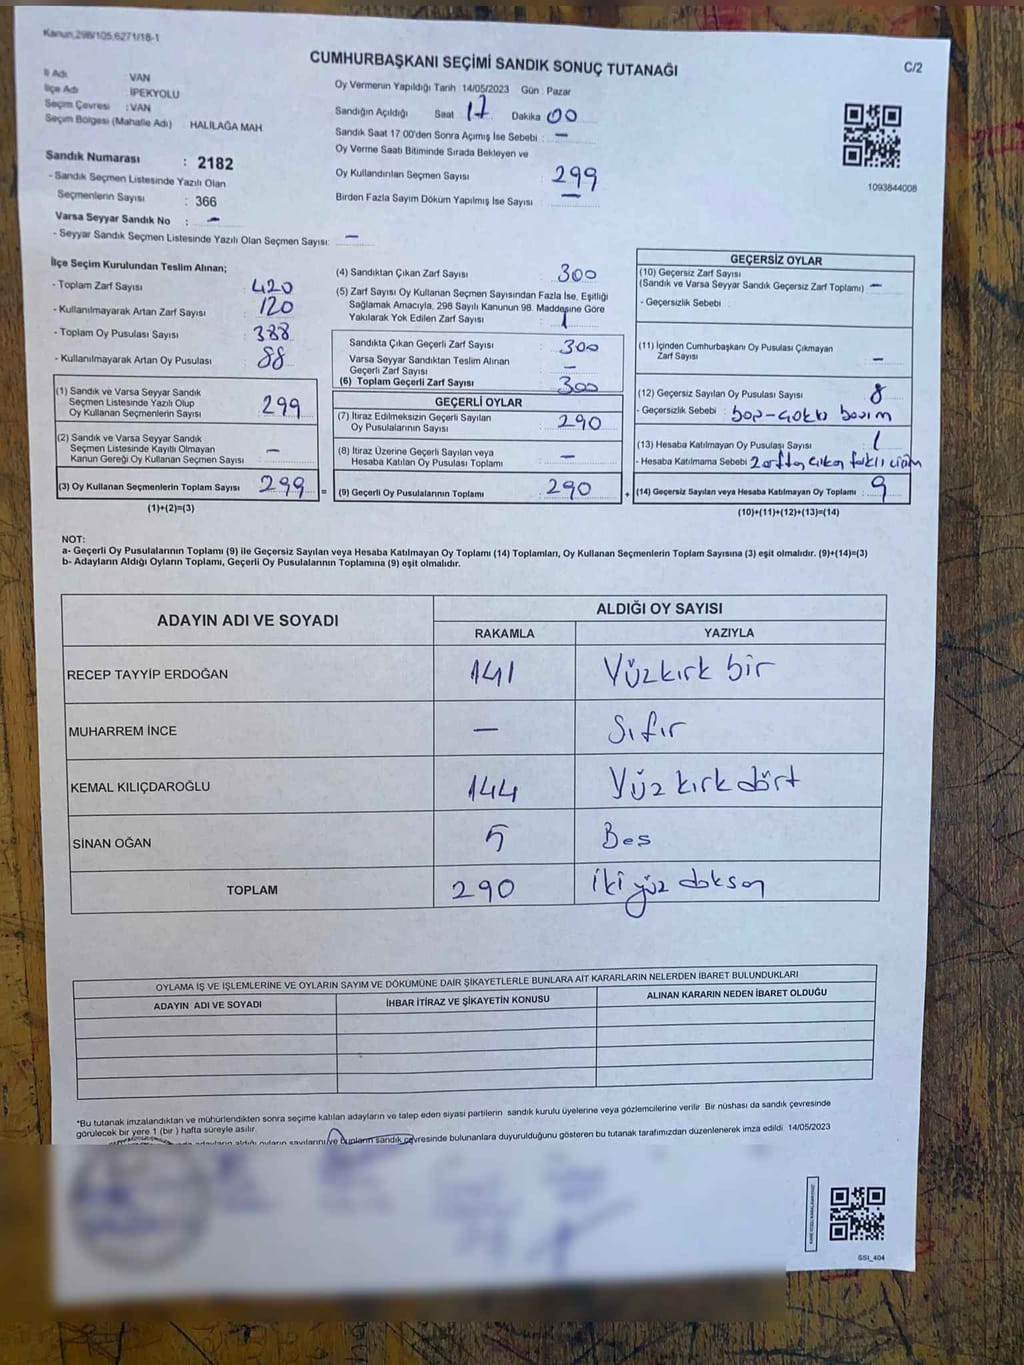 Kanun,298/105,6271/18-1
CUMHURBAŞKANI SEÇİMİ SANDIK SONUÇ TUTANAĞI
C/2
İl Adı VAN
İlçe Adı İPEKYOLU
Seçim Çevresi : VAN
Seçim Bölgesi (Mahalle Adı) HALİLAĞA MAH
Sandık Numarası : 2182
- Sandık Seçmen Listesinde Yazılı Olan
Seçmenlerin Sayısı : 366
Varsa Seyyar Sandık No : -
- Seyyar Sandık Seçmen Listesinde Yazılı Olan Seçmen Sayısı: -
Oy Vermenin Yapıldığı Tarih 14/05/2023 Gün : Pazar
Sandığın Açıldığı Saat 17 Dakika 00
Sandık Saat 17 00'den Sonra Açımış İse Sebebi : -
Oy Verme Saati Bitiminde Sırada Bekleyen ve
Oy Kullandırılan Seçmen Sayısı 299
Birden Fazla Sayım Döküm Yapılmış İse Sayısı -
1093844008
İlçe Seçim Kurulundan Teslim Alınan;
- Toplam Zarf Sayısı : 420
- Kullanılmayarak Artan Zarf Sayısı : 120
- Toplam Oy Pusulası Sayısı : 388
- Kullanılmayarak Artan Oy Pusulası : 88
(1) Sandık ve Varsa Seyyar Sandık
Seçmen Listesinde Yazılı Olup
Oy Kullanan Seçmenlerin Sayısı : 299
(2) Sandık ve Varsa Seyyar Sandık
Seçmen Listesinde Kayıtlı Olmayan
Kanun Gereği Oy Kullanan Seçmen Sayısı : -
(3) Oy Kullanan Seçmenlerin Toplam Sayısı : 299 =
(1)+(2)=(3)
(4) Sandıktan Çıkan Zarf Sayısı : 300
(5) Zarf Sayısı Oy Kullanan Seçmen Sayısından Fazla İse, Eşitliği
Sağlamak Amacıyla, 298 Sayılı Kanunun 98. Maddesine Göre
Yakılarak Yok Edilen Zarf Sayısı : 1
Sandıkta Çıkan Geçerli Zarf Sayısı : 300
Varsa Seyyar Sandıktan Teslim Alınan
Geçerli Zarf Sayısı : -
(6) Toplam Geçerli Zarf Sayısı : 300
GEÇERLİ OYLAR
(7) İtiraz Edilmeksizin Geçerli Sayılan
Oy Pusulalarının Sayısı : 290
(8) İtiraz Üzerine Geçerli Sayılan veya
Hesaba Katılan Oy Pusulası Toplamı : -
(9) Geçerli Oy Pusulalarının Toplamı : 290 +
GEÇERSİZ OYLAR
(10) Geçersiz Zarf Sayısı
(Sandık ve Varsa Seyyar Sandık Geçersiz Zarf Toplamı) -
- Geçersizlik Sebebi :
(11) İçinden Cumhurbaşkanı Oy Pusulası Çıkmayan
Zarf Sayısı : -
(12) Geçersiz Sayılan Oy Pusulası Sayısı : 8
- Geçersizlik Sebebi :
(13) Hesaba Katılmayan Oy Pusulası Sayısı : 1
- Hesaba Katılmama Sebebi :
(14) Geçersiz Sayılan veya Hesaba Katılmayan Oy Toplamı : 9
(10)+(11)+(12)+(13)=(14)
NOT:
a- Geçerli Oy Pusulalarının Toplamı (9) ile Geçersiz Sayılan veya Hesaba Katılmayan Oy Toplamı (14) Toplamları, Oy Kullanan Seçmenlerin Toplam Sayısına (3) eşit olmalıdır. (9)+(14)=(3)
b- Adayların Aldığı Oyların Toplamı, Geçerli Oy Pusulalarının Toplamına (9) eşit olmalıdır.
ADAYIN ADI VE SOYADI
ALDIĞI OY SAYISI
RAKAMLA YAZIYLA
RECEP TAYYİP ERDOĞAN 141 Yüzkırk bir
MUHARREM İNCE - Sıfır
KEMAL KILIÇDAROĞLU 144 Yüz kırk dört
SİNAN OĞAN 5 Bes
TOPLAM 290 iki yüz doksan
OYLAMA İŞ VE İŞLEMLERİNE VE OYLARIN SAYIM VE DÖKÜMÜNE DAİR ŞİKAYETLERLE BUNLARA AİT KARARLARIN NELERDEN İBARET BULUNDUKLARI
ADAYIN ADI VE SOYADI İHBAR İTİRAZ VE ŞİKAYETİN KONUSU ALINAN KARARIN NEDEN İBARET OLDUĞU
*Bu tutanak imzalandıktan ve mühürlendikten sonra seçime katılan adayların ve talep eden siyasi partilerin sandık kurulu üyelerine veya gözlemcilerine verilir Bir nüshası da sandık çevresinde
görülecek bir yere 1 (bir ) hafta süreyle asılır.
adayların aldığı oyların sayılarını ve bunların sandık çevresinde bulunanlara duyurulduğunu gösteren bu tutanak tarafımızdan düzenlenerek imza edildi 14/05/2023
SSI_404